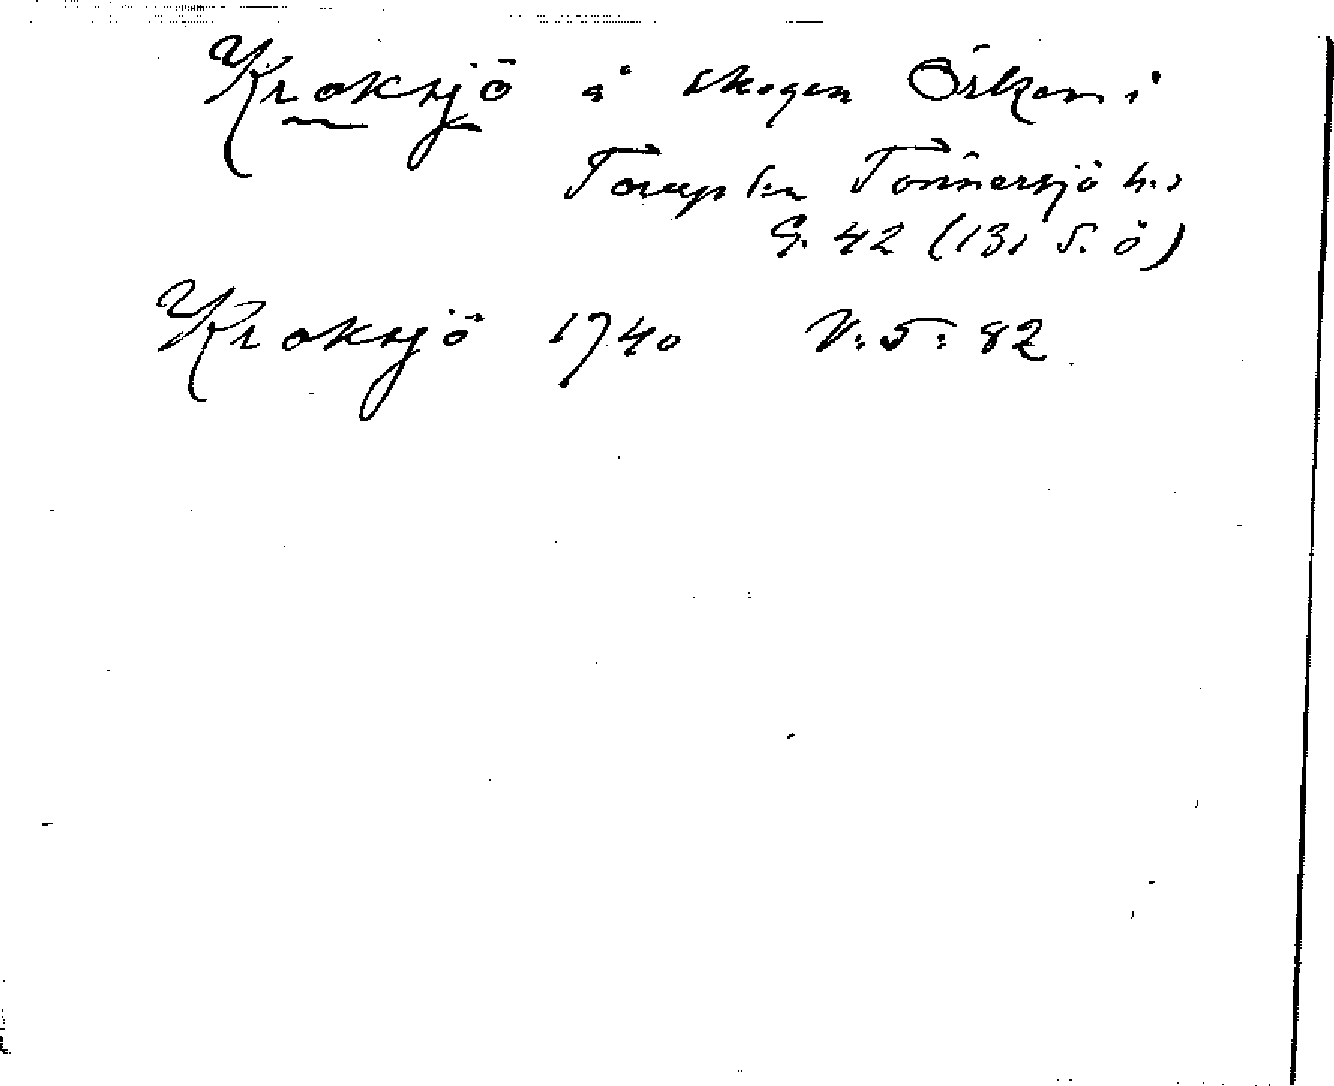 Kroksjö å skogen Örken i
Torup sn Tönnersjö h:
G. 42 (13, S. ö)
Kroksjö 1740 V: 5: 82